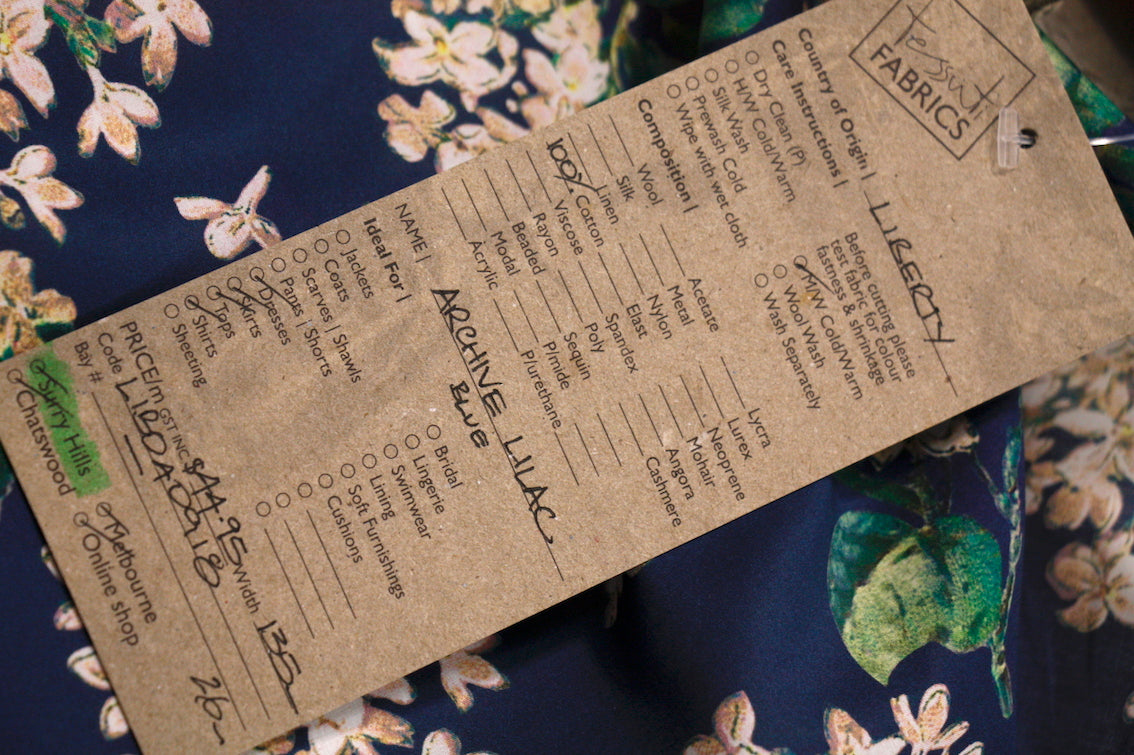 Tessuti
FABRICS
Country of Origin | LIBERTY
Care Instructions |
Before cutting please
test fabric for colour
fastness & shrinkage
Dry Clean (P)
H/W Cold/Warm
Silk Wash
Prewash Cold
Wipe with wet cloth
M/W Cold/Warm
Wool Wash
Wash Separately
Composition |
Wool
Silk
Linen
100% Cotton
Viscose
Rayon
Beaded
Modal
Acrylic
Acetate
Metal
Nylon
Elast
Spandex
Poly
Sequin
P/mide
P/urethane
Lycra
Lurex
Neoprene
Mohair
Angora
Cashmere
NAME | ARCHIVE LILAC
BLUE
Ideal For |
Jackets
Coats
Scarves | Shawls
Pants | Shorts
Dresses
Skirts
Tops
Shirts
Sheeting
Bridal
Lingerie
Swimwear
Lining
Soft Furnishings
Cushions
PRICE/m GST INC $44.95 Width 135
Code LIBDA0918
Bay # 26
Surry Hills
Chatswood
Melbourne
Online shop